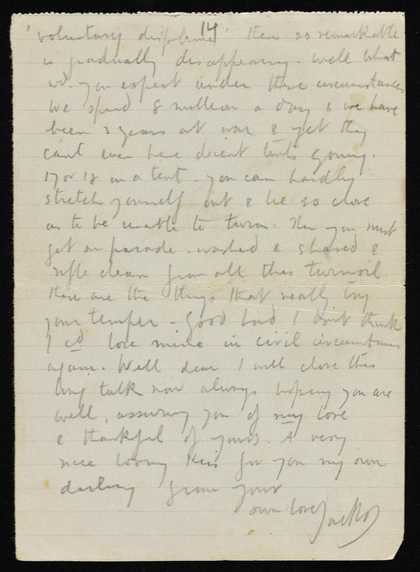 14
'voluntary discipline' then so remarkable
is gradually disappearing. Well what
wd you expect under these circumstances
We spend 8 million a day & we have
been 3 years at war & yet they
can't even have decent tents going.
17 or 18 in a tent - you can hardly
stretch yourself out & lie so close
as to be unable to turn. Then you must
get on parade - washed & shaved &
rifle clean from all this turmoil
these are the things that really try
your temper - Good Lord I don't think
I cd lose mine in civil circumstances
again. Well dear I will close this
long talk now always hoping you are
well, assuring you of my love
& thankful of yours. A very
nice loving kiss for you my own
darling from your
own love